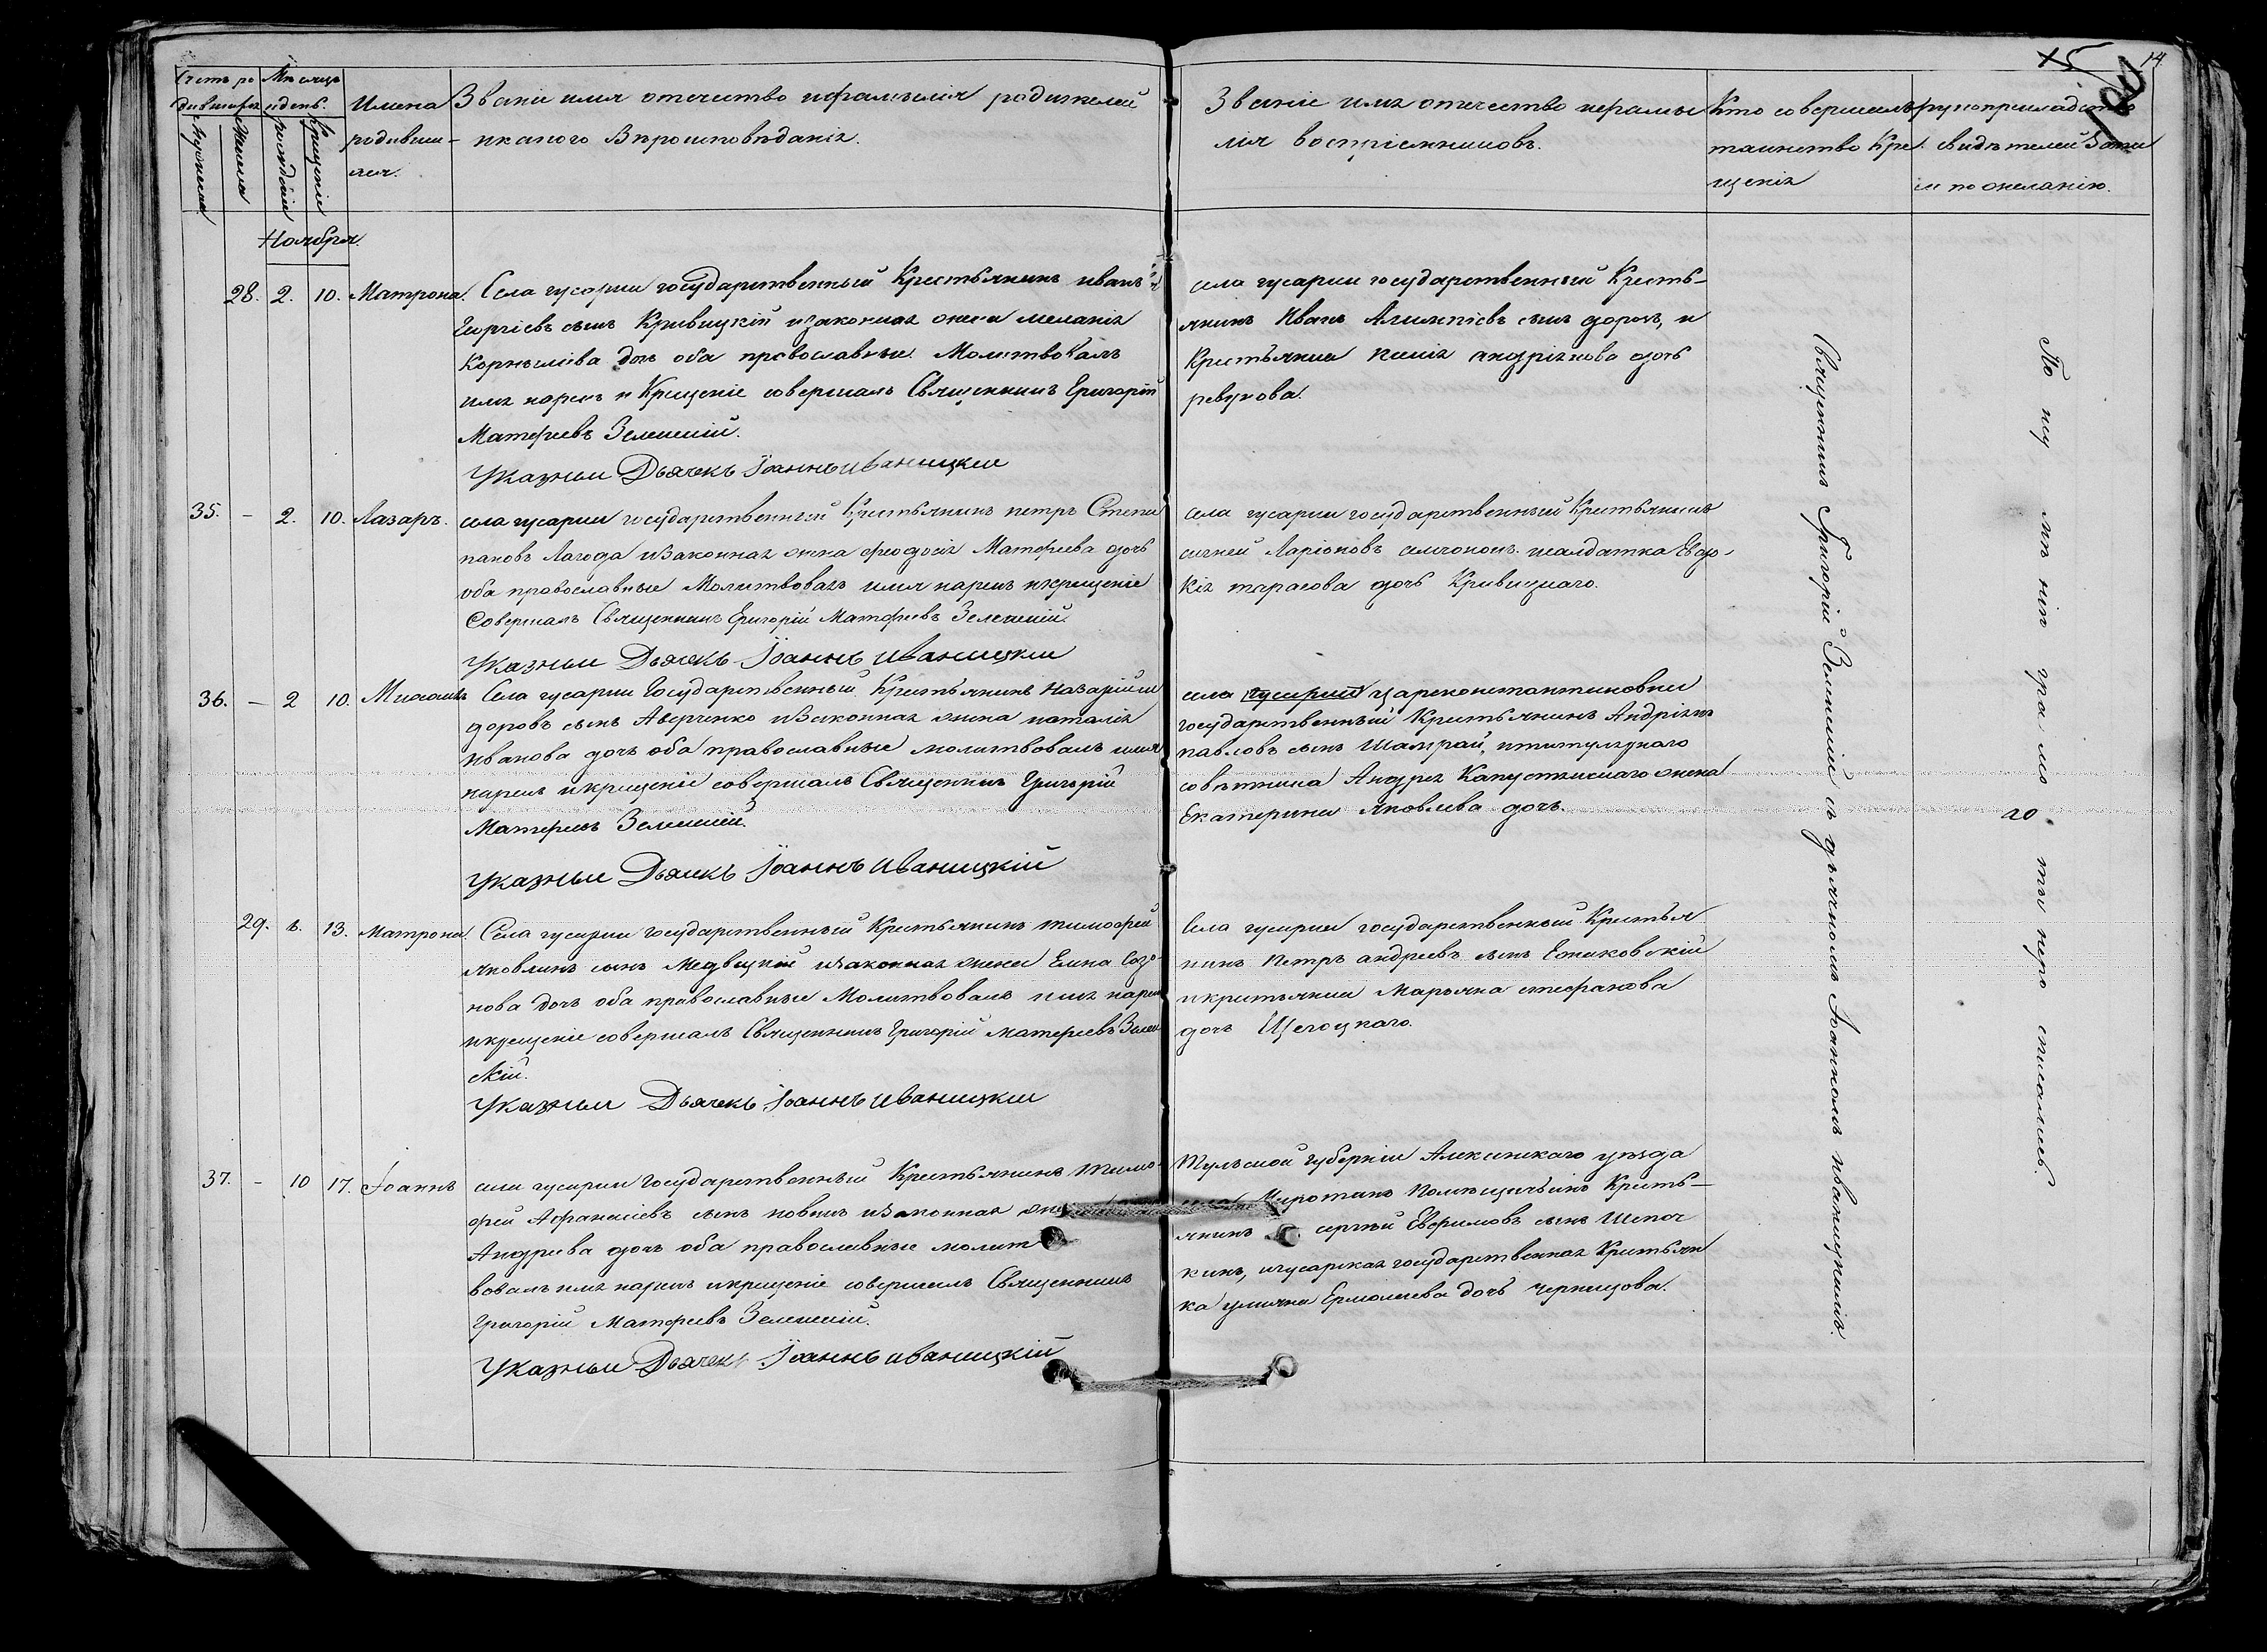 Счетъ ро
дившихся
Мужеска
Женска
Мѣсяцъ
и день.
рожденія
Крещеніе
Имена
родивши-
хся.
Званіе имя отечество и фамилія родителей
и какого Вѣроисповѣданія.
Званіе имя отечество и фами
лія воспріемниковъ.
Кто совершалъ
таинство Кре
щенія
рукоприкладство
свидѣтелей Запи
си по желанію.
14
Ноября.
28. 2. 10. Матрона.
Села гусарки государственный Крестьянинъ иванъ
Георгіевъ сынъ Кривицкій и законная жена меланія
Корнилиева дочь оба православные. Молитвовалъ
имя нарекъ и Крещеніе совершалъ Священникъ Григорій
Матфеевъ Зеленскій.
Указный Дьячекъ Іоаннъ Иваницкій
села гусарки государственный Кресть-
янинъ Иванъ Алимпіевъ сынъ дорошъ, и
Крестьянка андріянова дочь
ревукова.
35. - 2. 10. Лазаръ.
села гусарки государственный Крестьянинъ петръ Степа
пановъ Лагода и Законная жена феодосія Матфеева дочь
оба православные Молитвовалъ имя нарекъ и крещеніе
Совершалъ Священникъ Григорій Матфеевъ Зеленскій.
Указный Дьячекъ Іоаннъ Иваницкій
села гусарки государственный Крестьянинъ
Ларіоновъ солдатка Евдо-
кія тарасова дочь Кривицкаго.
36. - 2 10. Мисаилъ
Села гусарки Государственный Крестьянинъ Назарій
доровъ сынъ Аверченко и Законная жена наталія
иванова дочь оба православные молитвовалъ имя
нарекъ и крещеніе совершалъ Священникъ Григорій
Матфеевъ Зеленскій.
Указный Дьячекъ Іоаннъ Иваницкій
села гусарки цареконстантиновки
государственный Крестьянинъ Андріянъ
павловъ сынъ Шамрай, и титулярнаго
совѣтника Андрея Капустянскаго жена
Екатерина Яковлева дочь.
29. 8. 13. Матрона.
Села гусарки государственный Крестьянинъ тимофей
яковлевъ сынъ Медвецкій и законная жена Елена Созо-
нова дочь оба православные Молитвовалъ имя нарекъ
и крещеніе совершалъ Священникъ Григорій матфеевъ Зелен
скій.
Указный Дьячекъ Іоаннъ Иваницкій
Села гусарки государственный Крестья
нинъ Петръ андреевъ сынъ Ежаковскій
и крестьянка Марьяна стефанова
дочь Щегоцкаго.
37. - 10 17. Іоаннъ
села гусарки Государственный Крестьянинъ тимо-
фей Афанасіевъ сынъ новакъ и Законная жена
Андреева дочь оба православные молит
вовалъ имя нарекъ и крещеніе совершалъ Священникъ
Григорій Матфеевъ Зеленскій.
Указный Дьячекъ Іоаннъ Иваницкій
Тульской Губерніи Алексинскаго уѣзда
Кресть-
янинъ сергѣй Евфимовъ сынъ Шепоч
кинъ, и гусарская государственная Крестьян
ка Ермолаева дочь чернецова.
Священникъ Григорій Зеленскій съ дьячкомъ Іоанномъ иваницкимъ.
По не имѣнію грамоты не росписались.